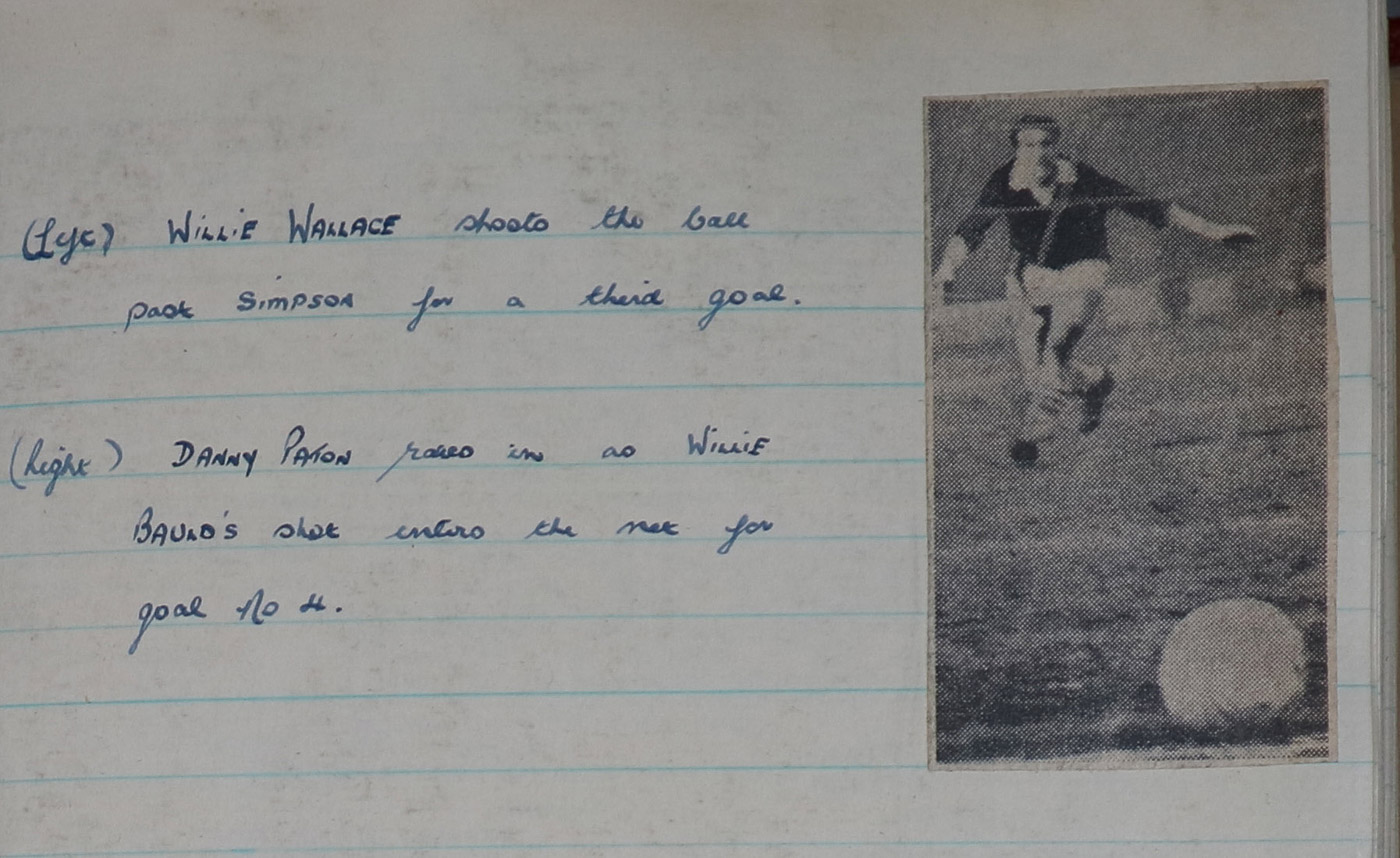 (Left) WILLIE WALLACE shoots the ball
past SIMPSON for a third goal.
(Right) DANNY PATON races in as WILLIE
BAULD'S shot enters the net for
goal No 4.